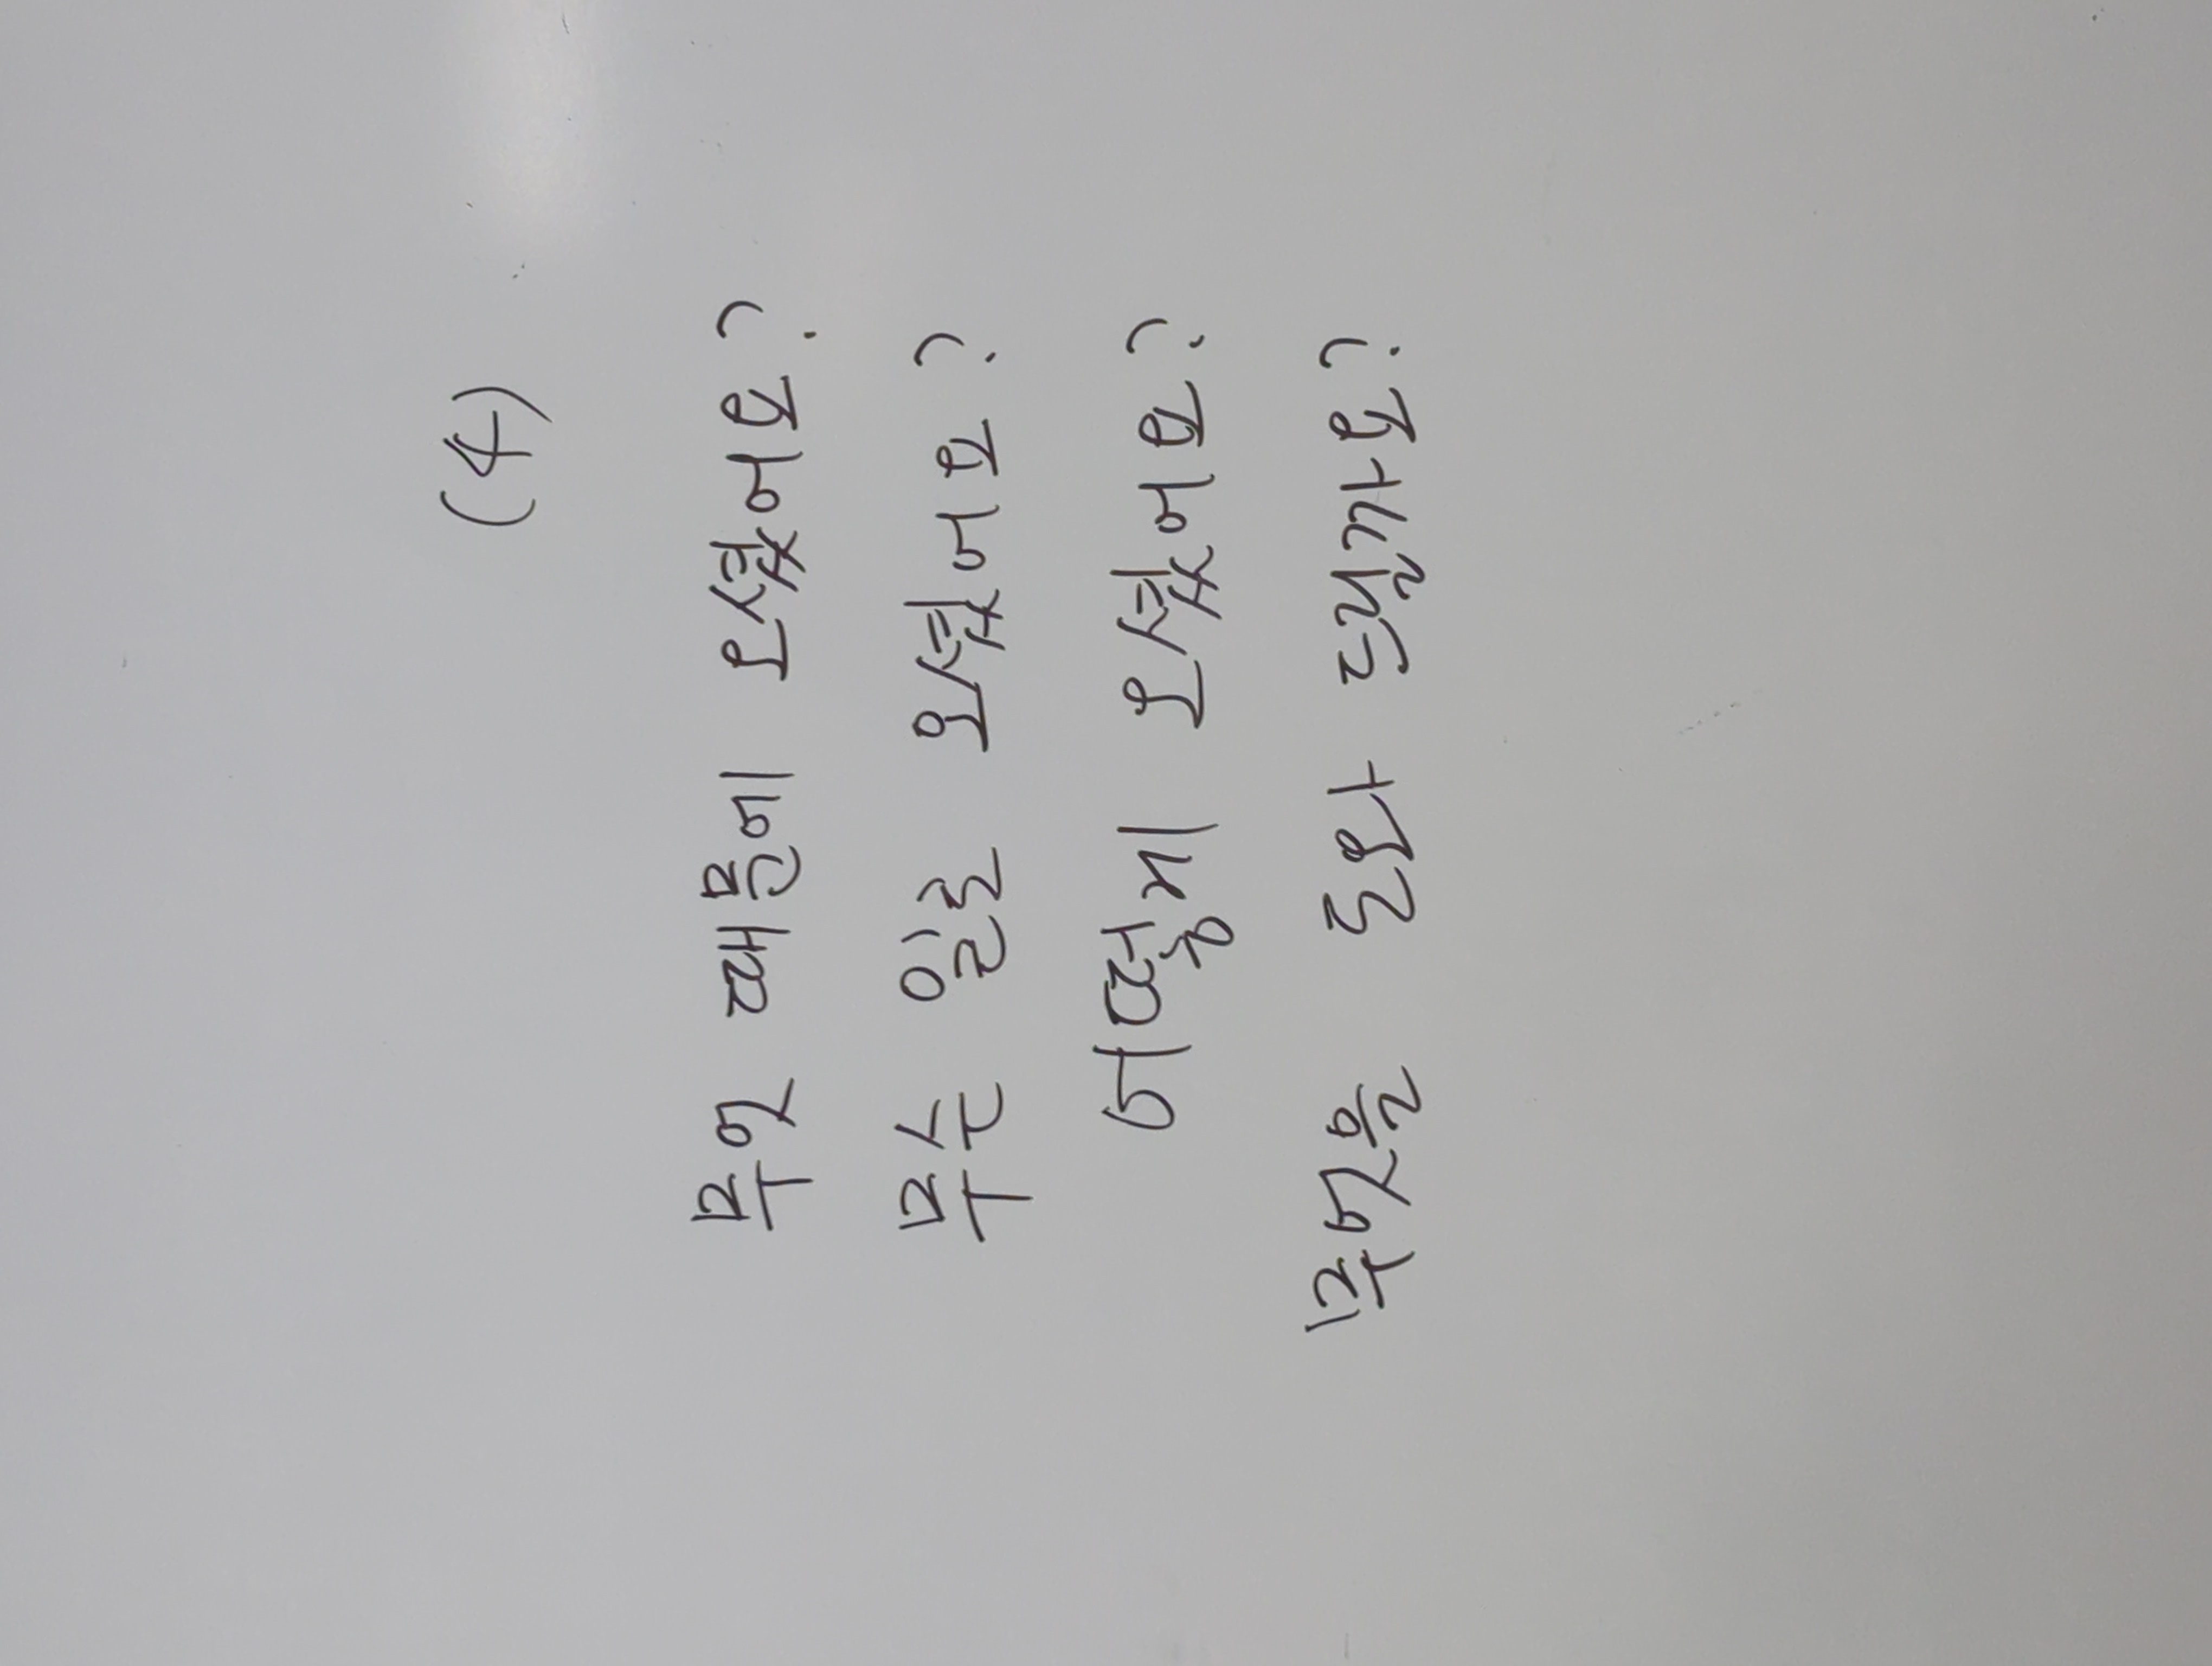 (4)
무엇 때문에 오셨어요?
무슨 일로 오셨어요?
어떻게 오셨어요?
무엇을 도와 드릴까요?